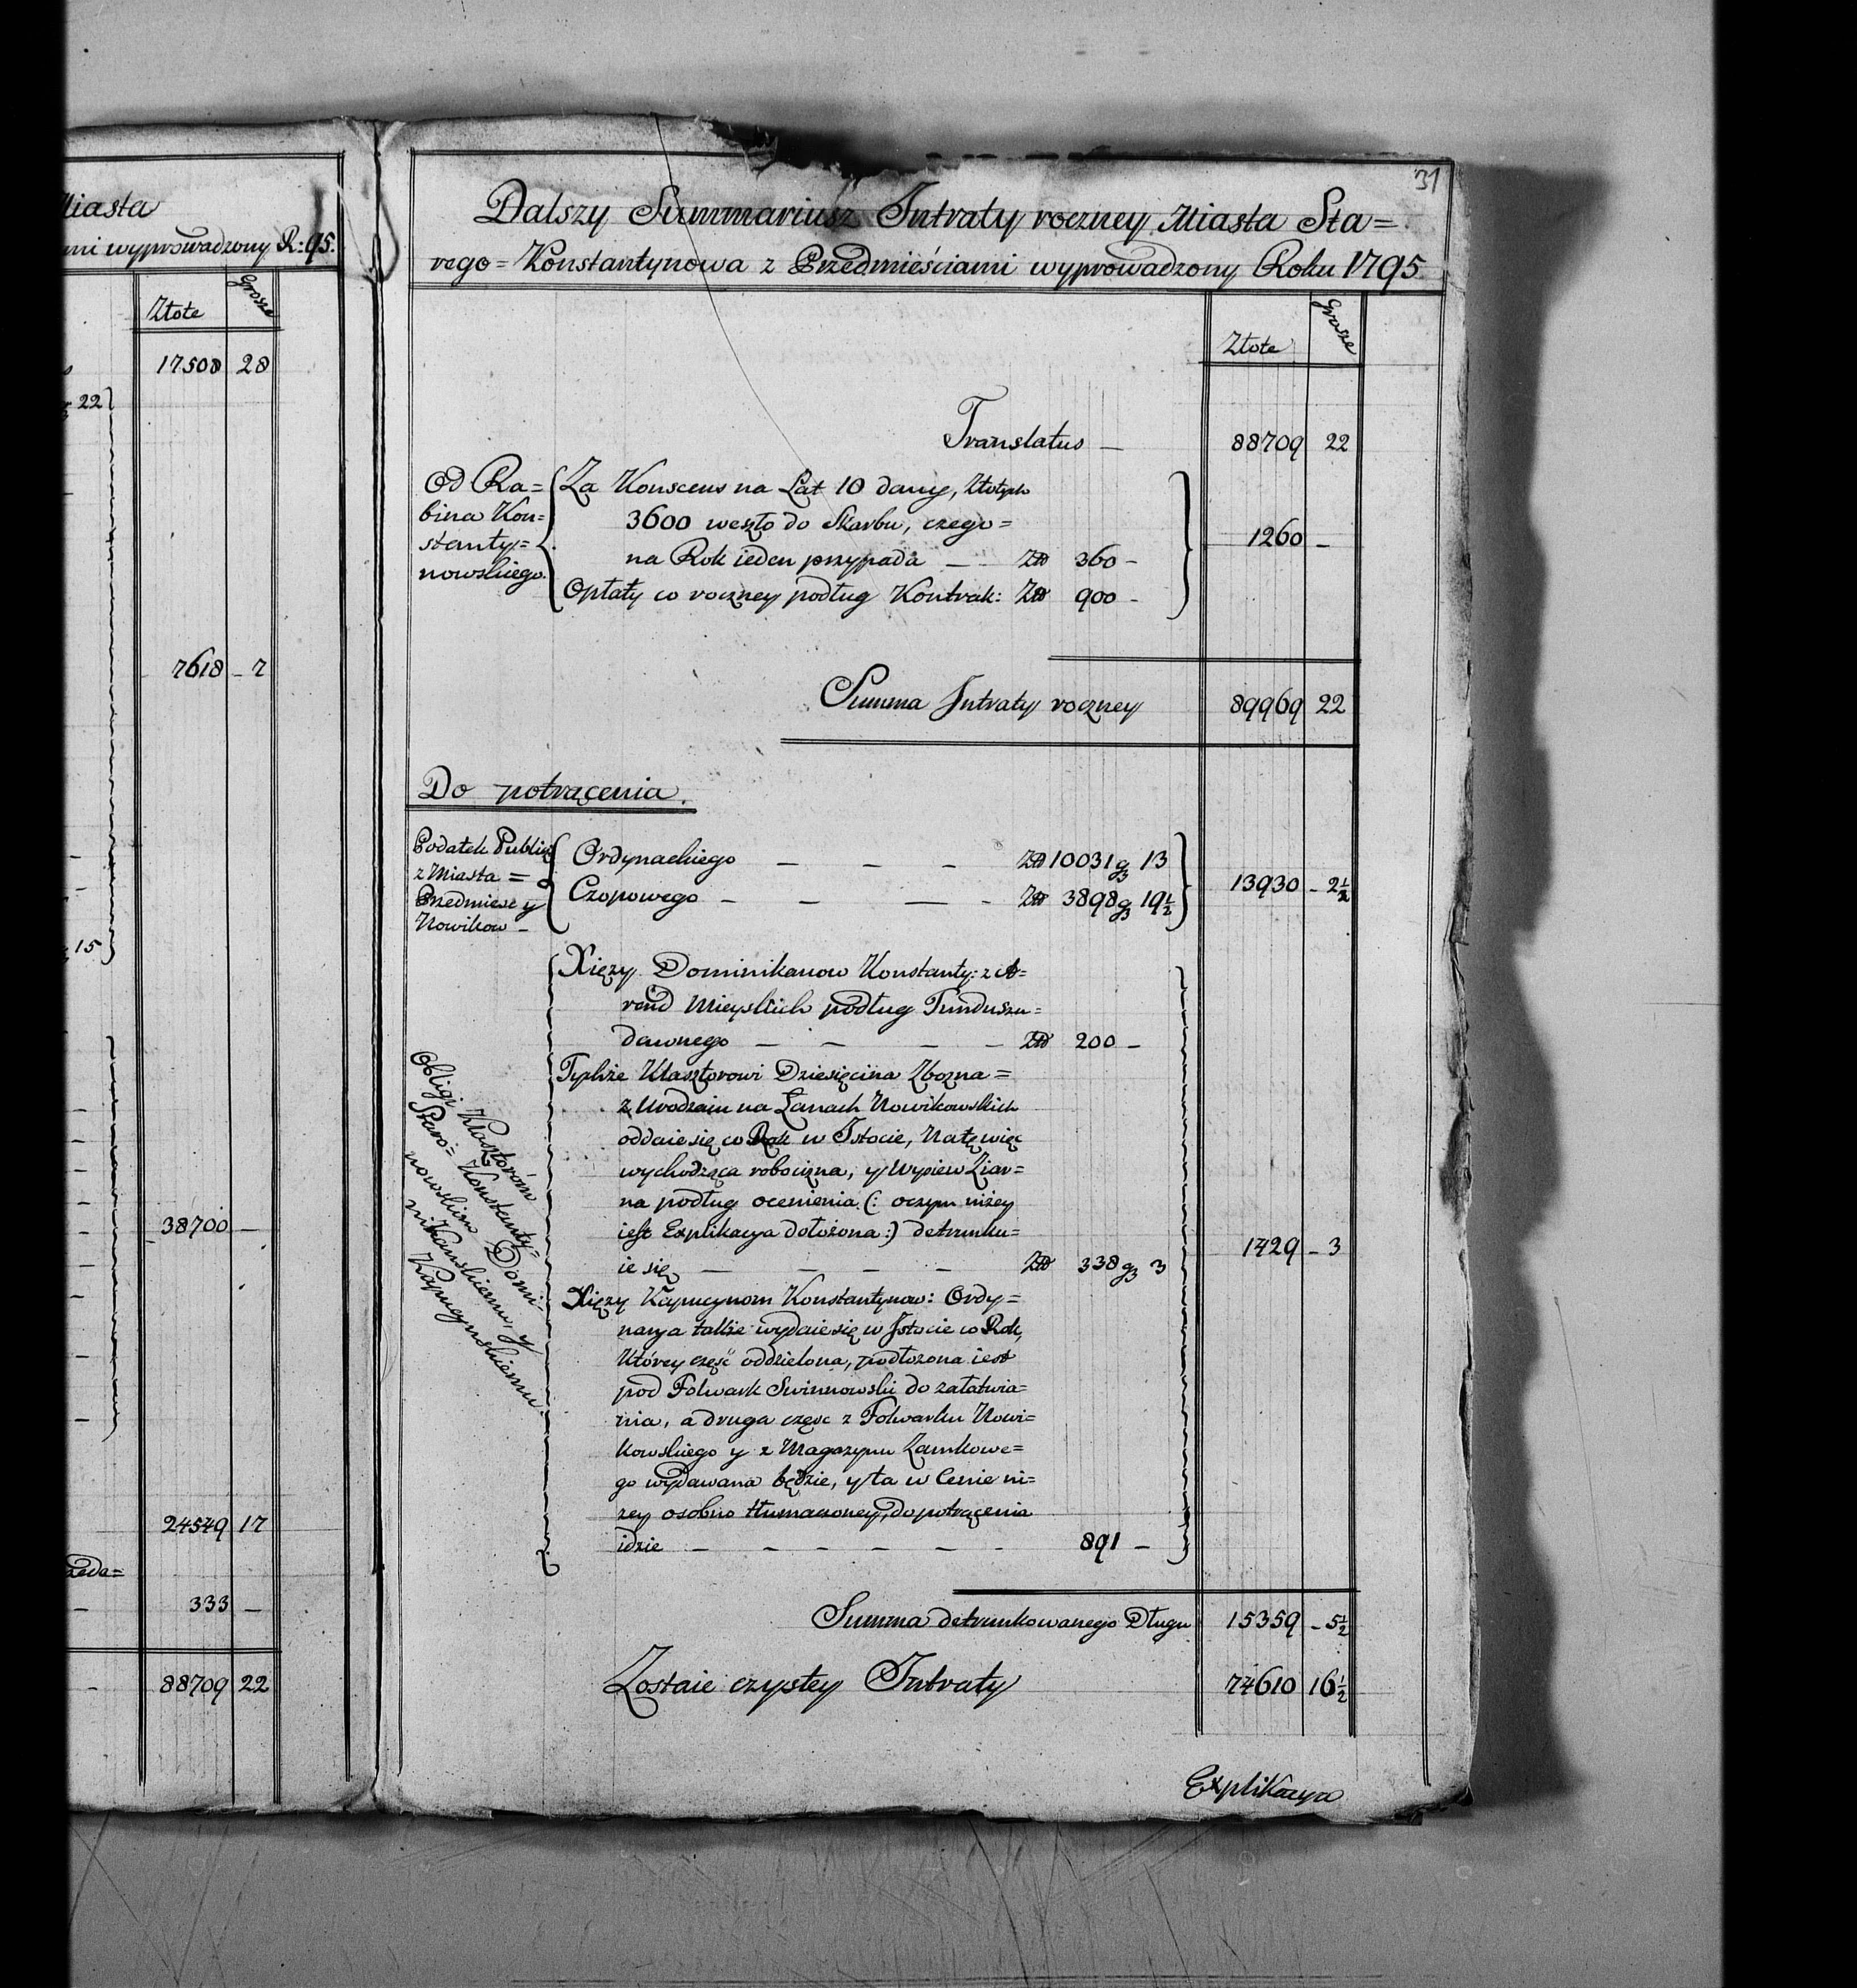 Miasta
ami wyprowadzony R: 95.
Złote Grosze
17508 28
22
7618 - 7
15
38700 -
24549 17
333 -
88709 22
31
Dalszy Summariusz Intraty roczney Miasta Sta=
rego=Konstantynowa z Przedmieściami wyprowadzony Roku 1795
Złote Grosze
Translatus — 88709 22
Od Ra=
bina Kon=
stanty=
nowskiego.
Za Konscens na Lat 10 dany, Złotych
3600 weszło do Skarbu, czego=
na Rok ieden przypada — Zł 360 -
Opłaty co roczney podług Kontrak: Zł 900 -
1260 -
Summa Intraty roczney 89969 22
Do potrącenia.
Podatek Public
z Miasta =
Przedmiesc y
Nowikow -
Ordynackiego — — — Zł 10031 gz 13
Czopowego — — — - Zł 3898 gz 19½
13930 - 2½
Obligi Klasztorom
Staro=Konstanty-
nowskim Domi-
nikanskiemu, y
Kapucynskiemu.
Xięzy Dominikanow Konstanty: z A=
rend Mieyskich podług Funduszu=
dawnego — — — — Zł 200 -
Tychże Klasztorowi Dziesięcina Zbozna=
z Urodzaiu na Łanach Nowikowskich
oddaie się co Rok w Istocie, Natę więc
wychodząca robocizna, y Wysiew Ziar=
na podług ocenienia (: oczym niżey
iest Explikacya dołożona :) detrunku=
ie się — — — — Zł 338 gz 3
Xięzy Kapucynom Konstantynow: Ordy=
narya także wydaie się w Istocie co Rok,
Którey część oddzielona, podłozona iest
pod Folwark Swinnowski do załatwia=
nia, a druga częsc z Folwarku Nowi=
kowskiego y z Magazynu Zamkowe=
go wydawana będzie, y ta w Cenie ni=
zey osobno tłumaczoney, do potrącenia
idzie — — — — — - 891 -
1429 - 3
Summa detrunkowanego Długu 15359 - 5½
Zostaie czystey Intraty 74610 16½
Explikacya